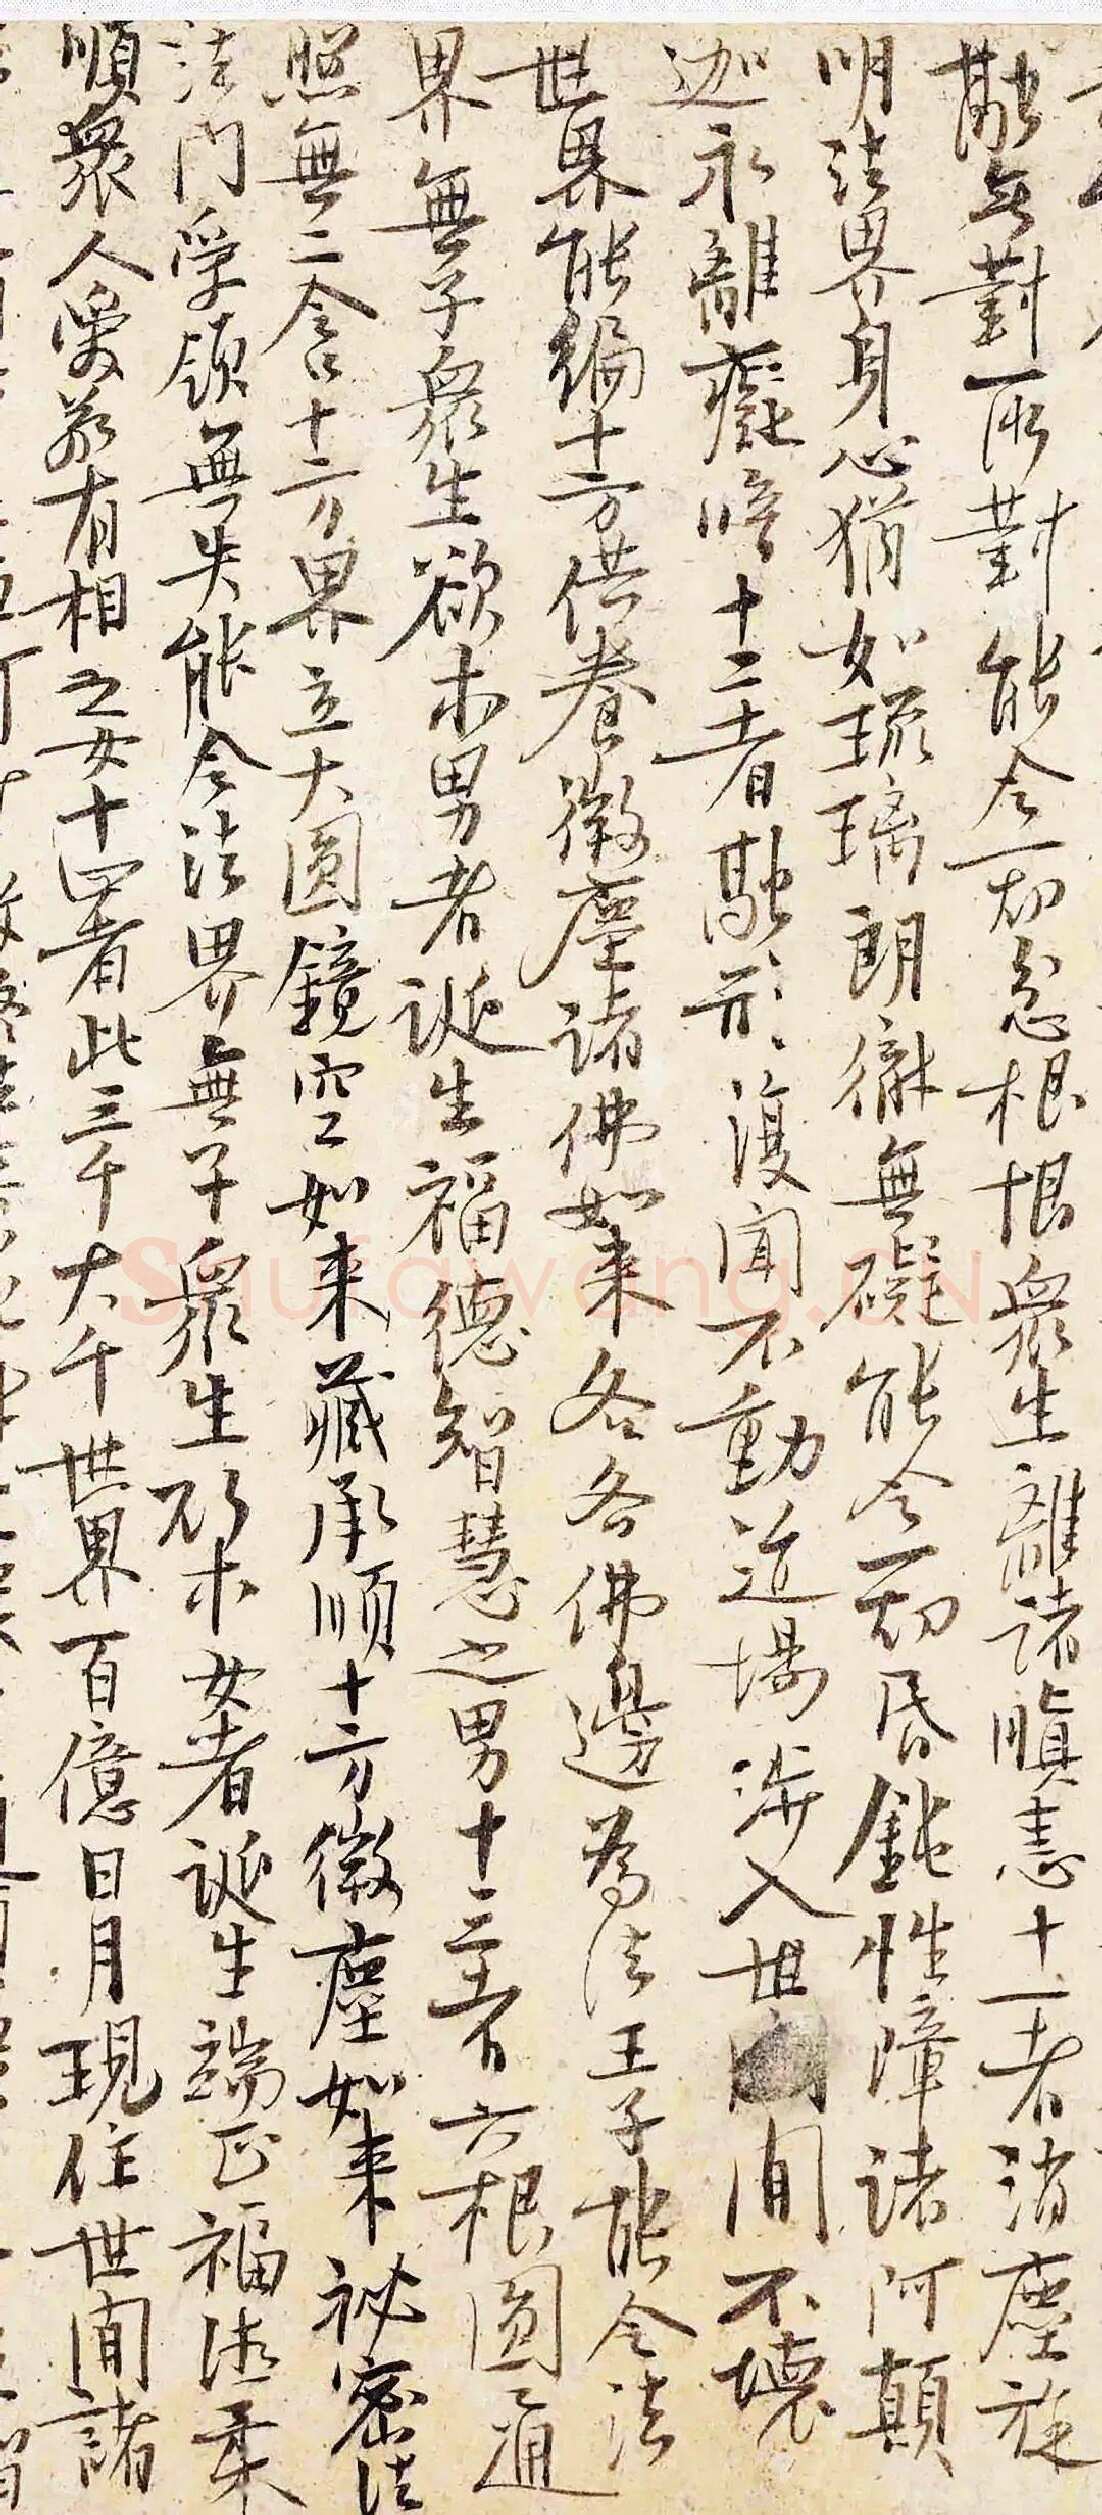 融無對所對能令一切忿恨衆生離諸瞋恚十一者消塵旋
明法界身心猶如琉璃朗徹無礙能令一切昏鈍性障諸阿顛
迦永離癡暗十二者融形復聞不動道場涉入世間不壞
世界能徧十方供養微塵諸佛如來各各佛邊為法王子能令法
界無子衆生欲求男者誕生福德智慧之男十三者六根圓通
照無二含十方界立大圓鏡空如來藏承順十方微塵如來祕密法
法門受領無失能令法界無子衆生欲求女者誕生端正福德柔
順衆人愛敬有相之女十四者此三千大千世界百億日月現住世間諸
Shufawang.CN